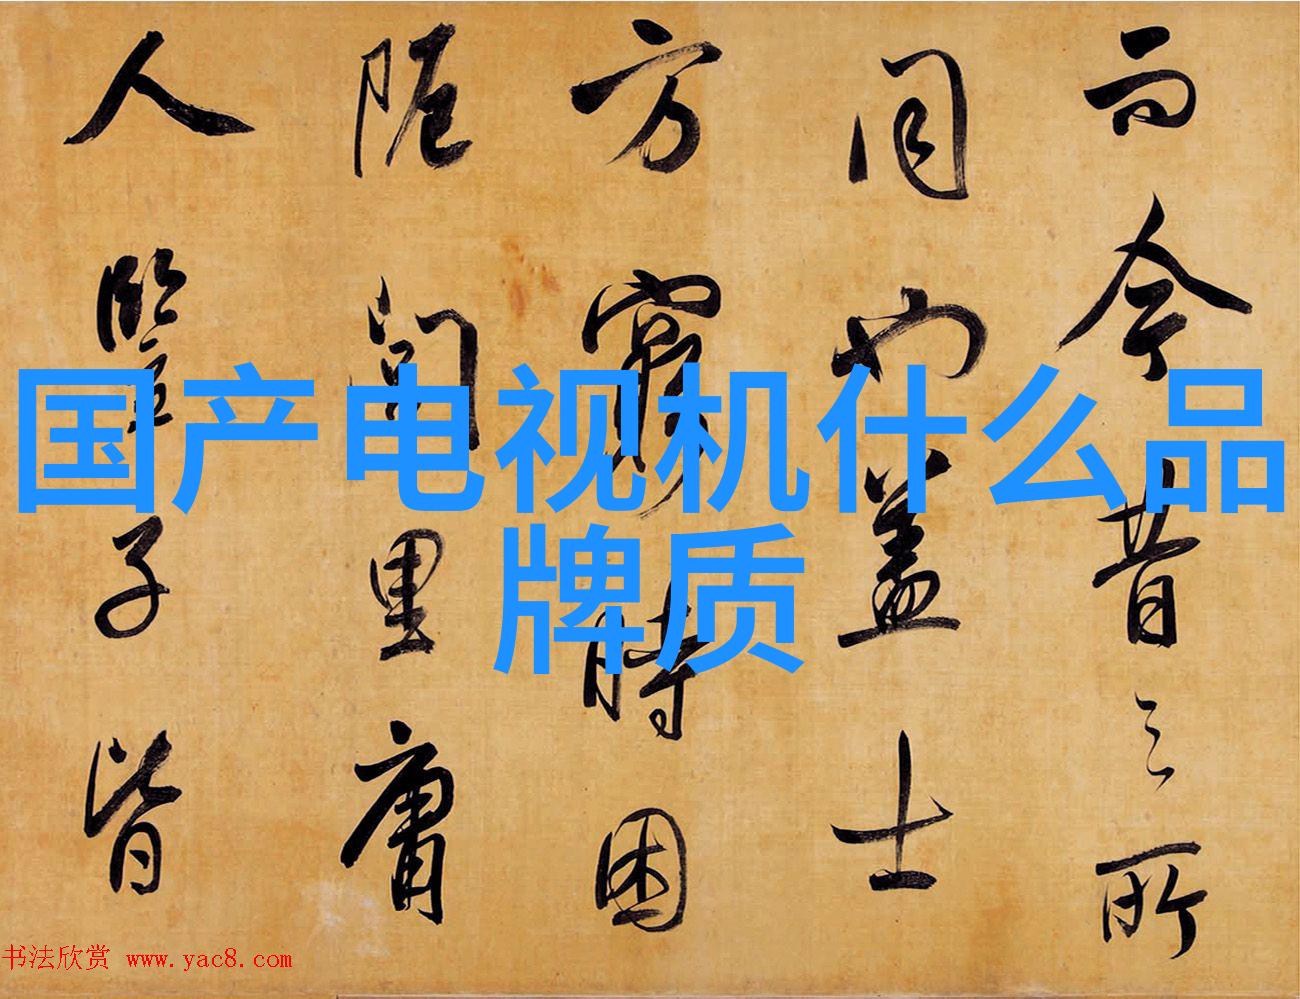 而今昔之所
同也盖士
方穷时困
阨闾里庸
人竖子皆
国产电视机什么品
牌质
书法欣赏 www.yac8.com